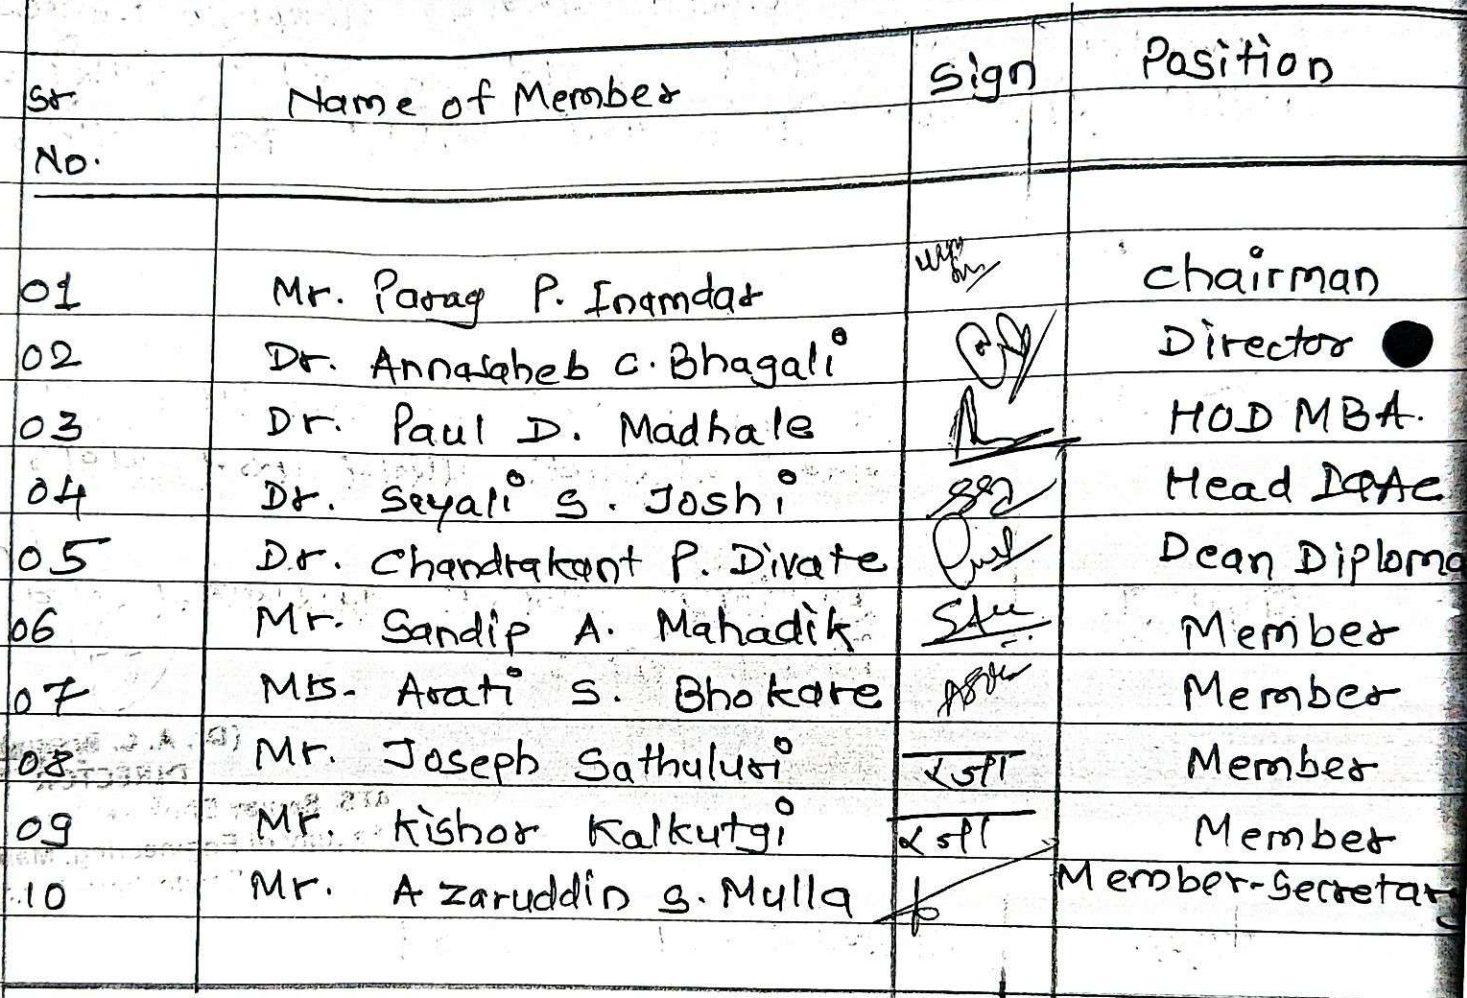 Sr No. Name of Member Sign Position
01 Mr. Parag P. Inamdar Chairman
02 Dr. Annasaheb C. Bhagali Director
03 Dr. Paul D. Madhale HOD MBA.
04 Dr. Sayali S. Joshi Head IQAC
05 Dr. Chandrakant P. Divate Dean Diploma
06 Mr. Sandip A. Mahadik Member
07 Mrs. Arati S. Bhokare Member
08 Mr. Joseph Sathuluri रजा Member
09 Mr. Kishor Kalkutgi रजा Member
10 Mr. Azaruddin S. Mulla Member-Secretary